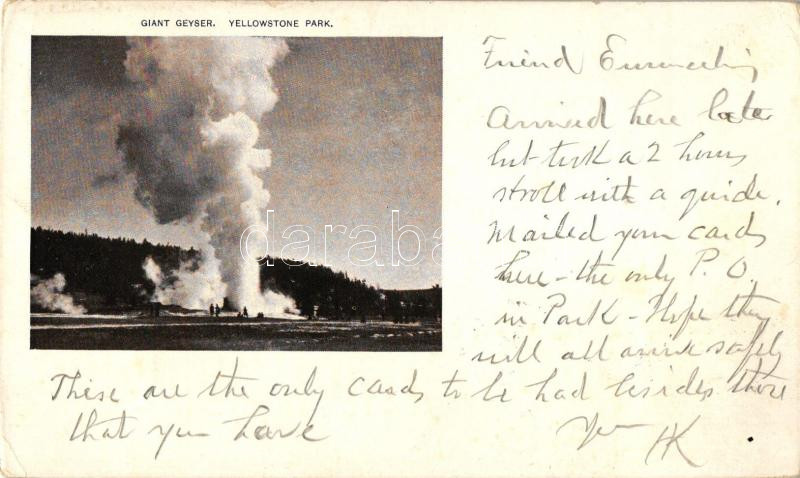 GIANT GEYSER. YELLOWSTONE PARK.
Friend
Arrived here late
but took a 2 hours
stroll with a guide.
Mailed your cards
here - the only P. O.
in Park - Hope they
will all arrive safely
These are the only cards to be had besides those
that you have
Yr HK
darabanth